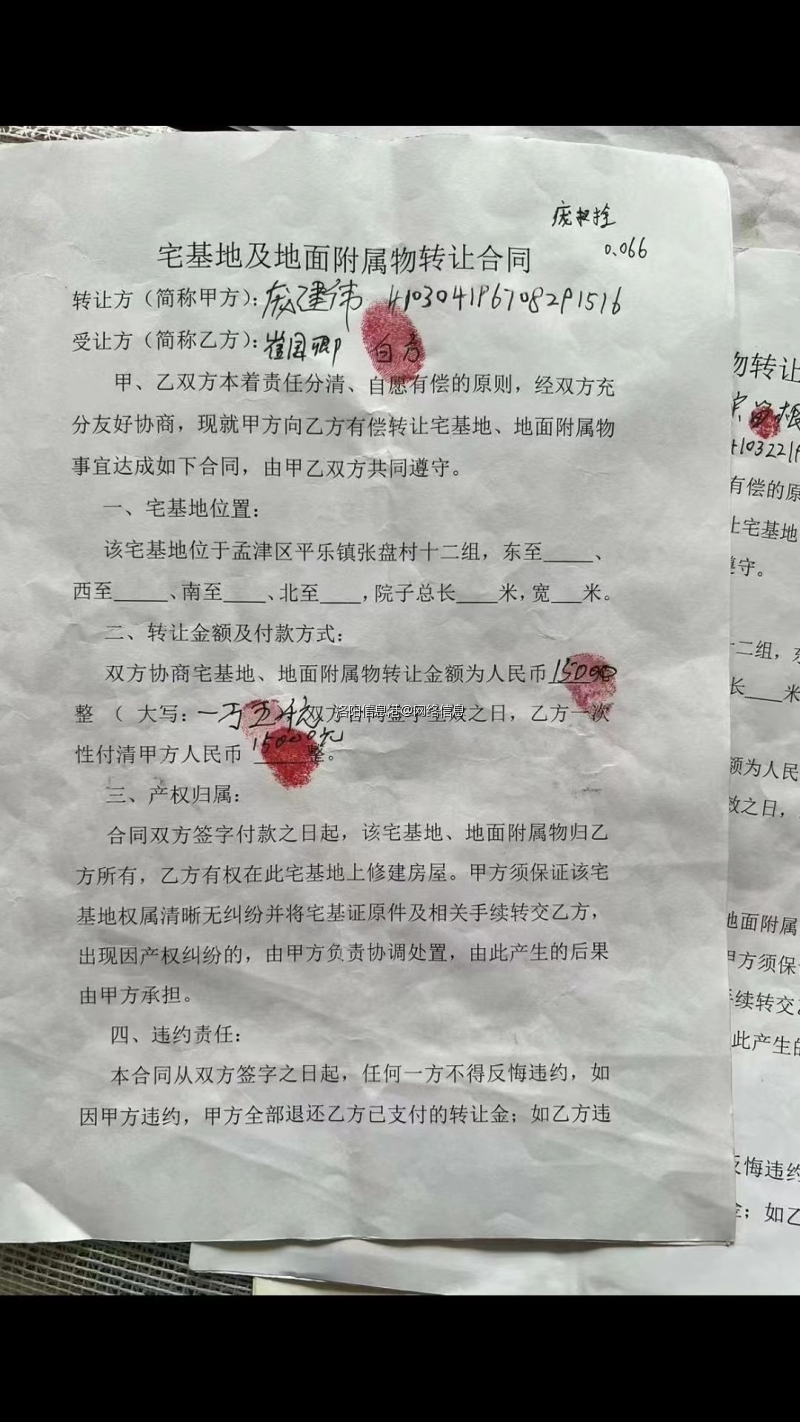 庞拴
0.066
宅基地及地面附属物转让合同
转让方（简称甲方）：庞建伟 410304196708291516
受让方（简称乙方）：崔国卿 白彦
甲、乙双方本着责任分清、自愿有偿的原则，经双方充
分友好协商，现就甲方向乙方有偿转让宅基地、地面附属物
事宜达成如下合同，由甲乙双方共同遵守。
一、宅基地位置：
该宅基地位于孟津区平乐镇张盘村十二组，东至____、
西至____、南至____、北至____，院子总长____米，宽___米。
二、转让金额及付款方式：
双方协商宅基地、地面附属物转让金额为人民币15000
整（大写：一万五仟元 双方合同签字生效之日，乙方一次
洛阳信息港@网络信息
性付清甲方人民币 15000元整。
三、产权归属：
合同双方签字付款之日起，该宅基地、地面附属物归乙
方所有，乙方有权在此宅基地上修建房屋。甲方须保证该宅
基地权属清晰无纠纷并将宅基证原件及相关手续转交乙方，
出现因产权纠纷的，由甲方负责协调处置，由此产生的后果
由甲方承担。
四、违约责任：
本合同从双方签字之日起，任何一方不得反悔违约，如
因甲方违约，甲方全部退还乙方已支付的转让金；如乙方违
物转让
根
41032219
有偿的原
让宅基地
遵守。
十二组，东
长___米
额为人民
效之日，
地面附属
甲方须保
手续转交
此产生的
反悔违约
金；如乙